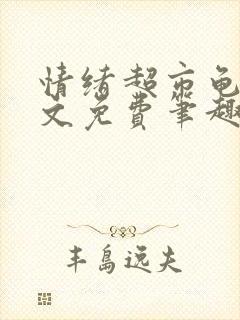 情绪超市龟
文免费笔趣
丰岛远夫